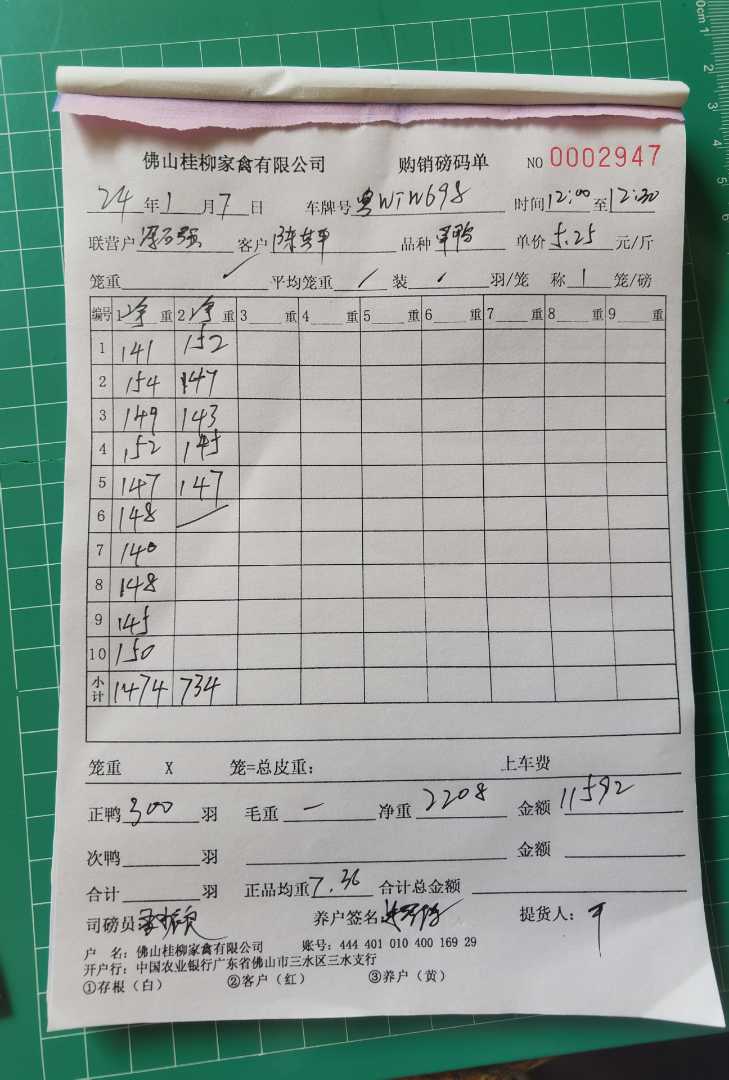 佛山桂柳家禽有限公司 购销磅码单 NO 0002947
24年1月7日 车牌号粤WTW698 时间12:00至12:30
联营户 客户陈其平 品种 鸭 单价5.25元/斤
笼重 ✓ 平均笼重 / 装 羽/笼 称1笼/磅
编号 1净重 2净重 3 重 4 重 5 重 6 重 7 重 8 重 9 重
1 141 152
2 154 147
3 149 143
4 152 145
5 147 147
6 148 /
7 140
8 148
9 145
10 150
小计 1474 734
笼重 X 笼=总皮重: 上车费
正鸭300羽 毛重 — 净重2208 金额11592
次鸭 羽 金额
合计 羽 正品均重7.36 合计总金额
司磅员: 养户签名: 提货人:
户 名: 佛山桂柳家禽有限公司 账号: 444 401 010 400 169 29
开户行: 中国农业银行广东省佛山市三水区三水支行
①存根(白) ②客户(红) ③养户(黄)
0cm 1
2
3
4
5
6